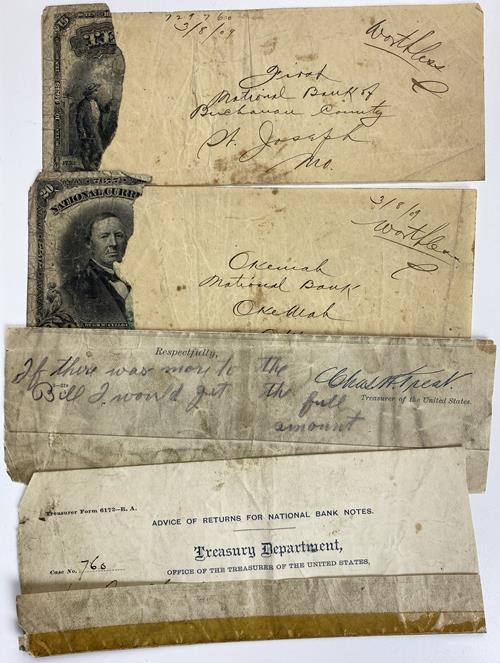 729760
3/8/09
Worthless
First
National Bank of
Buchanan County
St. Joseph
Mo.
20
NATIONAL CURR
3/8/09
Worthless
Okemah
National Bank
Okemah
Respectfully,
If there was more to the
Bill I would get the full
amount
Treasurer of the United States.
Treasurer Form 6172—R. A.
ADVICE OF RETURNS FOR NATIONAL BANK NOTES.
Treasury Department,
Case No. 760
OFFICE OF THE TREASURER OF THE UNITED STATES,